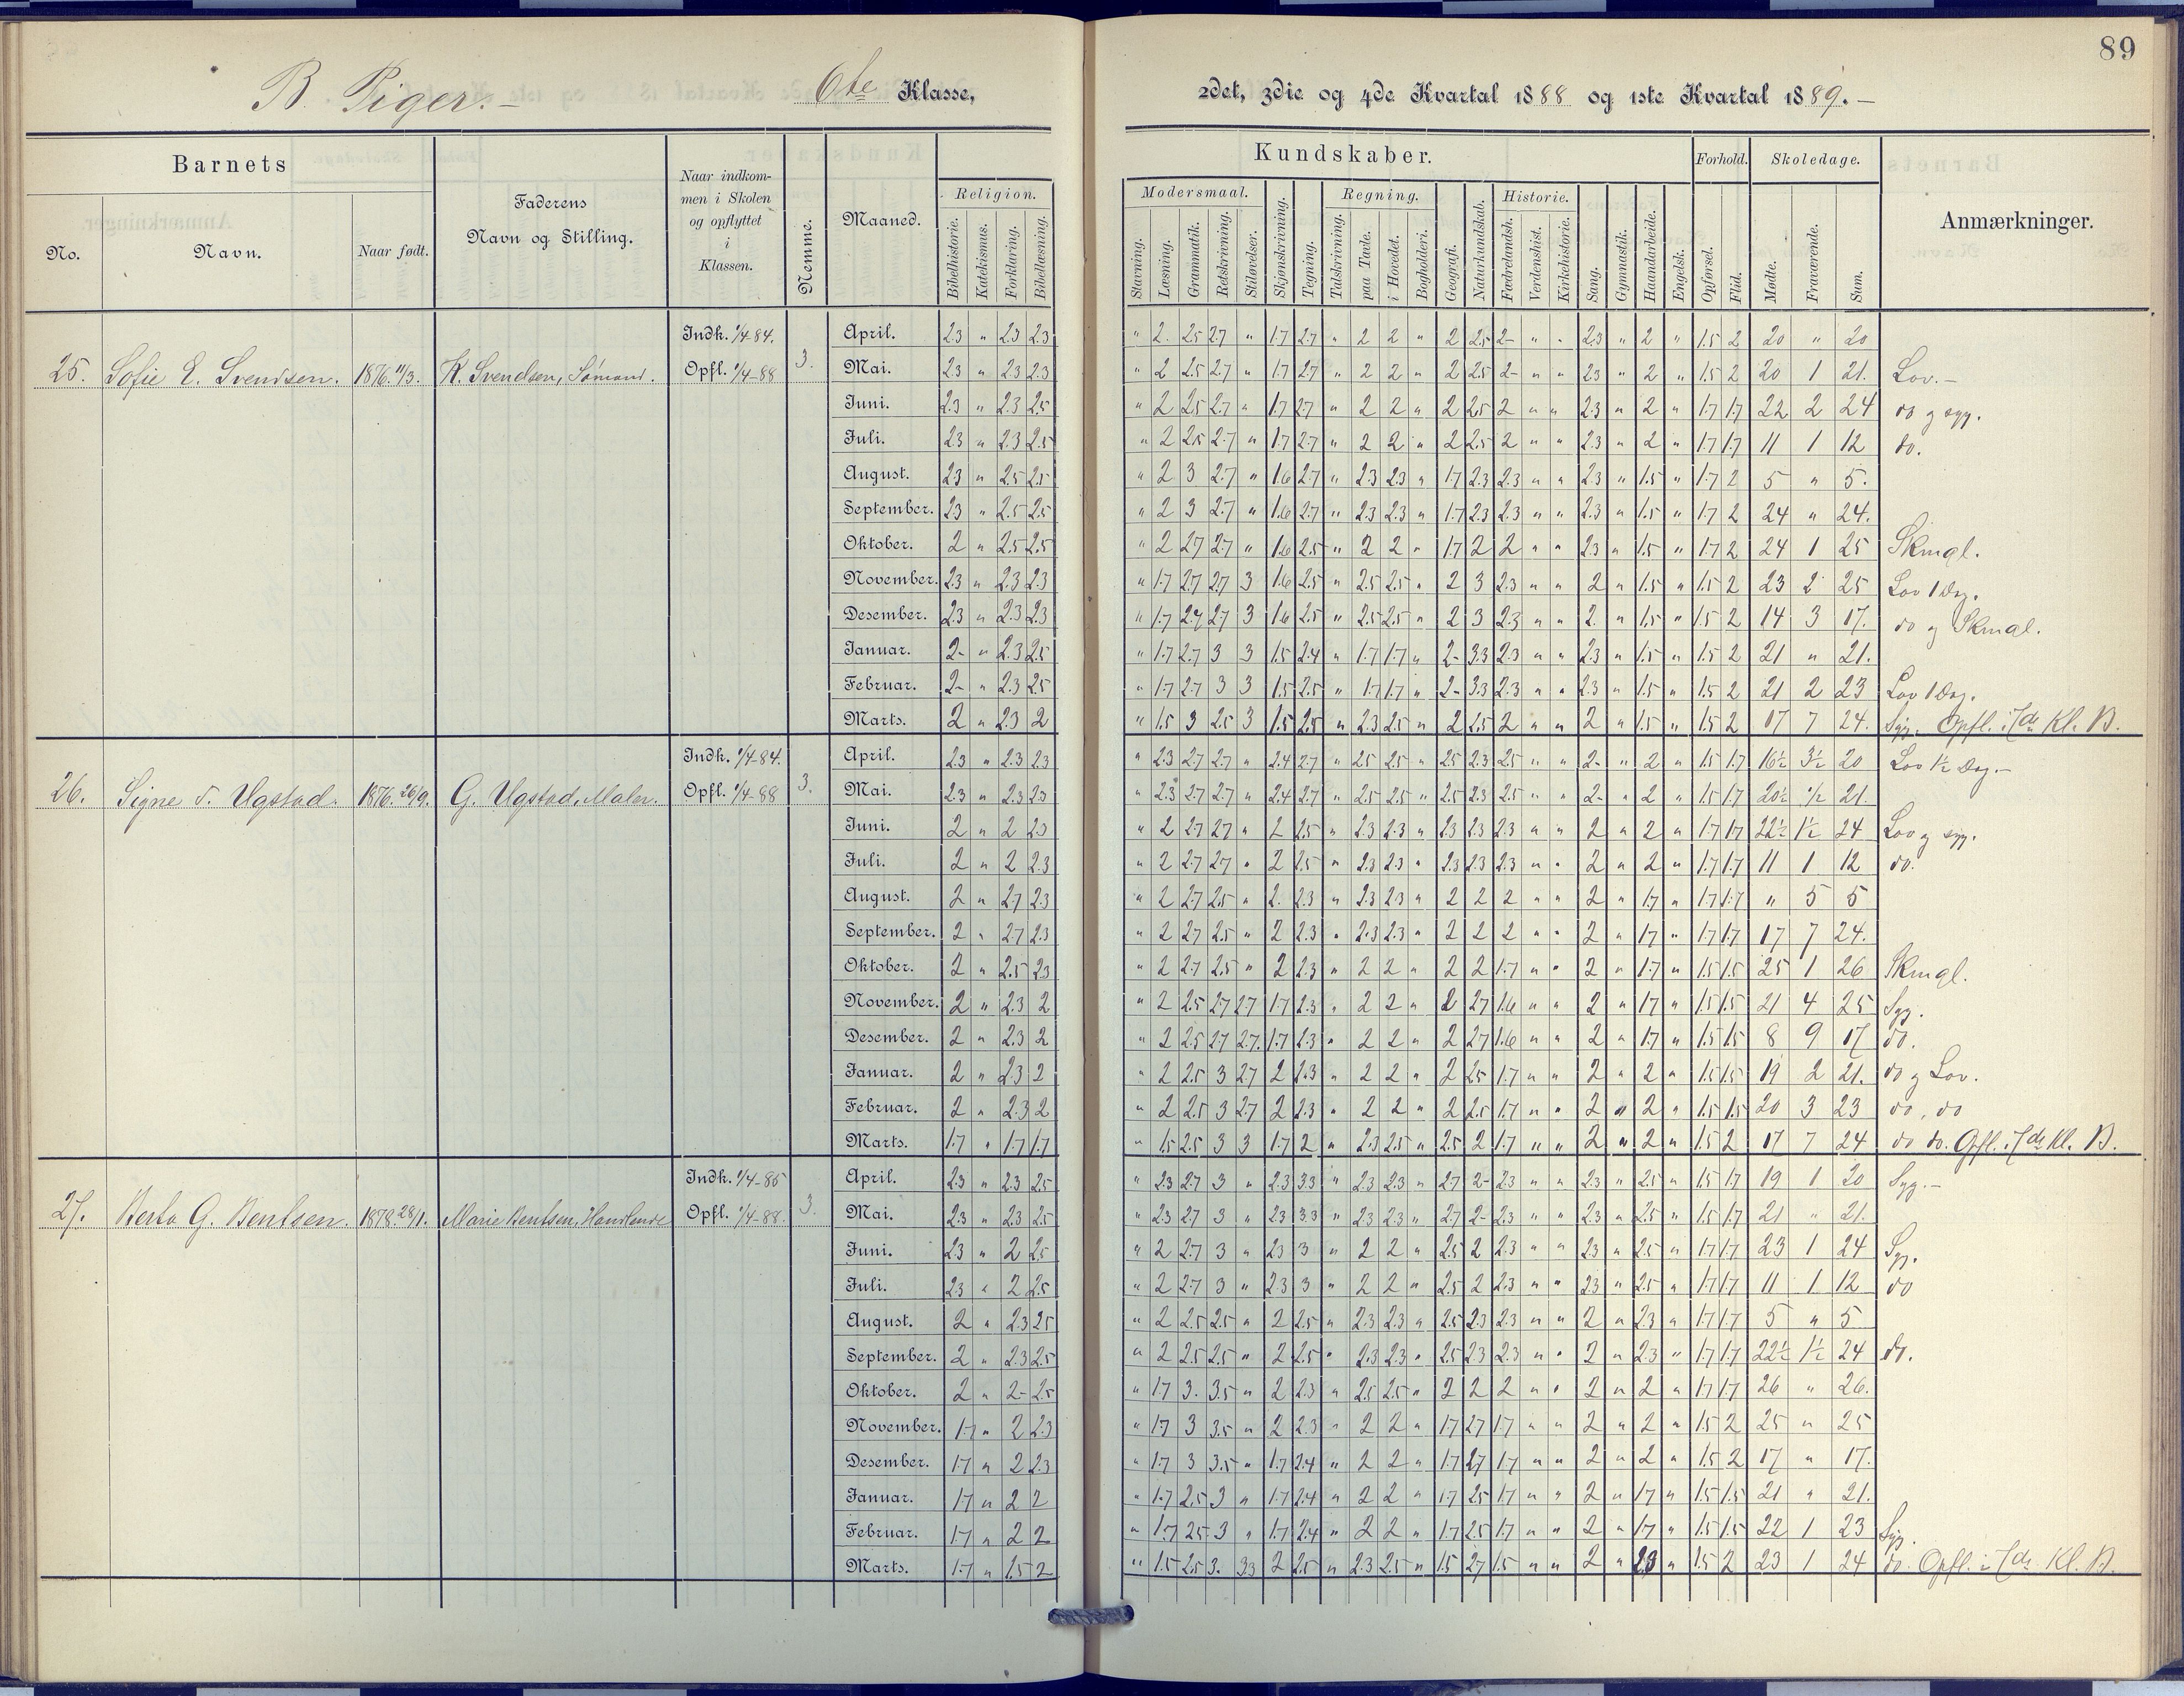 89
B. Piger.- 6te Klasse, 2det, 3die og 4de Kvartal 1888 og 1ste Kvartal 1889.-
Barnets
No.
Navn.
Naar født.
Faderens
Navn og Stilling.
Naar indkom-
men i Skolen
og opflyttet
i
Klassen.
Nemme.
Maaned.
Religion.
Bibelhistorie.
Katekismus.
Forklaring.
Bibellæsning.
Kundskaber.
Modersmaal.
Stavning.
Læsning.
Grammatik.
Retskrivning.
Stiløvelser.
Skjønskrivning.
Tegning.
Regning.
Talskrivning.
paa Tavle.
i Hovedet.
Bogholderi.
Geografi.
Naturkundskab.
Historie.
Fædrelandsh.
Verdenshist.
Kirkehistorie.
Sang.
Gymnastik.
Haandarbeide.
Engelsk.
Forhold.
Opførsel.
Flid.
Skoledage.
Mødte.
Fraværende.
Sum.
Anmærkninger.
25. Sofie E. Svendsen. 1876. 11/3. K. Svendsen, Sømand. Indk. 1/4-84. Opfl. 1/4-88 3.
April. 2.3 " 2.3 2.3 " 2. 2.5 2.7 " 1.7 2.7 " 2 2 " 2 2.5 2- " " 2.3 " 2 " 1.5 2 20 " 20
Mai. 2.3 " 2.3 2.3 " 2 2.5 2.7 " 1.7 2.7 " 2 2 " 2 2.5 2- " " 2.3 " 2 " 1.5 2 20 1 21. Lov.-
Juni. 2.3 " 2.3 2.5 " 2 2.5 2.7 " 1.7 2.7 " 2 2 " 2 2.5 2 " " 2.3 " 2 " 1.7 1.7 22 2 24 do og syg.
Juli. 2.3 " 2.3 2.5 " 2 2.5 2.7 " 1.7 2.7 " 2 2 " 2 2.5 2 " " 2.3 " 2 " 1.7 1.7 11 1 12 do.
August. 2.3 " 2.5 2.5 " 2 3 2.7 " 1.6 2.7 " 2.3 2.3 " 1.7 2.3 2.3 " " 2.3 " 1.5 " 1.7 2 5 " 5.
September. 2.3 " 2.5 2.5 " 2 3 2.7 " 1.6 2.7 " 2.3 2.3 " 1.7 2.3 2.3 " " 2.3 " 1.5 " 1.7 2 24 " 24.
Oktober. 2 " 2.5 2.5 " 2 2.7 2.7 " 1.6 2.5 " 2 2 " 1.7 2 2 " " 2.3 " 1.5 " 1.7 2 24 1 25 Skmgl.
November. 2.3 " 2.3 2.3 " 1.7 2.7 2.7 3 1.6 2.5 " 2.5 2.5 " 2 3 2.3 " " 2 " 1.5 " 1.5 2 23 2 25 Lov 1 Dag.
Desember. 2.3 " 2.3 2.3 " 1.7 2.7 2.7 3 1.6 2.5 " 2.5 2.5 " 2 3 2.3 " " 2. " 1.5 " 1.5 2 14 3 17. do og Skmgl.
Januar. 2- " 2.3 2.5 " 1.7 2.7 3 3 1.5 2.4 " 1.7 1.7 " 2- 3.3 2.3 " " 2.3 " 1.5 " 1.5 2 21 " 21.
Februar. 2- " 2.3 2.5 " 1.7 2.7 3 3 1.5 2.5 " 1.7 1.7 " 2- 3.3 2.3 " " 2.3 " 1.5 " 1.5 2 21 2 23 Lov 1 Dag.
Marts. 2 " 2.3 2 " 1.5 3 2.5 3 1.5 2.5 " 2.3 2.5 " 2 2.5 2 " " 2 " 1.5 " 1.5 2 17 7 24. Syg. Opfl. i 7de Kl. B.
26. Signe S. Ugstad. 1876. 26/9. G. Ugstad, Maler. Indk. 1/4-84. Opfl. 1/4-88 3.
April. 2.3 " 2.3 2.3 " 2.3 2.7 2.7 " 2.4 2.7 " 2.5 2.5 " 2.5 2.3 2.5 " " 2- " 2 " 1.5 1.7 16½ 3½ 20 Lov 1½ Dag.-
Mai. 2.3 " 2.3 2.3 " 2.3 2.7 2.7 " 2.4 2.7 " 2.5 2.5 " 2.5 2.3 2.5 " " 2- " 2 " 1.5 1.7 20½ ½ 21.
Juni. 2 " 2 2.3 " 2 2.7 2.7 " 2 2.5 " 2.3 2.3 " 2.3 2.3 2.3 " " 2 " 2 " 1.7 1.7 22½ 1½ 24 Lov og syg.
Juli. 2 " 2 2.3 " 2 2.7 2.7 " 2 2.5 " 2.3 2.3 " 2.3 2.3 2.3 " " 2 " 2 " 1.7 1.7 11 1 12 do.
August. 2 " 2.7 2.3 " 2 2.7 2.5 " 2. 2.3 " 2.3 2.3 " 2 2 2 " " 2 " 1.7 " 1.7 1.7 " 5 5
September. 2 " 2.7 2.3 " 2 2.7 2.5 " 2 2.3 " 2.3 2.3 " 2 2 2 " " 2 " 1.7 " 1.7 1.7 17 7 24.
Oktober. 2 " 2.5 2.3 " 2 2.7 2.5 " 2 2.3 " 2 2 " 2 2 1.7 " " 2 " 1.7 " 1.5 1.5 25 1 26 Skmgl.
November. 2 " 2.3 2 " 2 2.5 2.7 2.7 1.7 2.3 " 2 2 " 2 2.7 1.6 " " 2 " 1.7 " 1.5 1.5 21 4 25 Syg.
Desember. 2 " 2.3 2 " 2 2.5 2.7 2.7. 1.7 2.3 " 2 2 " 2 2.7 1.6 " " 2 " 1.7 " 1.5 1.5 8 9 17 do.
Januar. 2 " 2.3 2 " 2 2.5 3 2.7 2 2.3 " 2 2 " 2 2.5 1.7 " " 2 " 2 " 1.5 1.5 19 2 21. do og Lov.
Februar. 2 " 2.3 2 " 2 2.5 3 2.7 2 2.3 " 2 2 " 2 2.5 1.7 " " 2 " 2 " 1.5 1.5 20 3 23 do, do
Marts. 1.7 " 1.7 1.7 " 1.5 2.5 3 3 1.7 2 " 2.3 2.5 " 2.5 2 1.7 " " 2 " 2 " 1.5 2 17 7 24 do do. Opfl. i 7de Kl. B.
27. Berta G. Bentsen. 1878. 28/1. Marie Bentsen, Handlende Indk. 1/4-85 Opfl. 1/4-88. 3.
April. 2.3 " 2.3 2.5 " 2.3 2.7 3 " 2.3 3.3 " 2.3 2.3 " 2.7 2- 2.3 " " 2.3 " 2.5 " 1.5 1.7 19 1 20 Syg.-
Mai. 2.3 " 2.3 2.5 " 2.3 2.7 3 " 2.3 3.3 " 2.3 2.3 " 2.7 2- 2.3 " " 2.3 " 2.5 " 1.5 1.7 21 " 21.
Juni. 2.3 " 2 2.5 " 2 2.7 3 " 2.3 3 " 2 2 " 2.5 2 2.3 " " 2.3 " 2.5 " 1.7 1.7 23 1 24 Syg.
Juli. 2.3 " 2 2.5 " 2 2.7 3 " 2.3 3 " 2 2 " 2.5 2 2.3 " " 2.3 " 2.5 " 1.7 1.7 11 1 12 do
August. 2 " 2.3 2.5 " 2 2.5 2.5 " 2 2.5 " 2.3 2.3 " 2.5 2.3 2.3 " " 2 " 2.3 " 1.7 1.7 5 " 5
September. 2 " 2.3 2.5 " 2 2.5 2.5 " 2 2.5 " 2.3 2.3 " 2.5 2.3 2.3 " " 2 " 2.3 " 1.7 1.7 22½ 1½ 24 do.
Oktober. 2 " 2- 2.5 " 1.7 3. 3.5 " 2 2.3 " 2.5 2.5 " 2 2 2 " " 2 " 2 " 1.7 1.7 26 " 26.
November. 1.7 " 2 2.3 " 1.7 3 3.5 " 2 2.3 " 2 2 " 1.7 2.7 1.7 " " 2 " 2 " 1.5 2 25 " 25
Desember. 1.7 " 2 2.3 " 1.7 3 3.5 " 1.7 2.4 " 2 2 " 1.7 2.7 1.7 " " 2 " 2 " 1.5 2 17 " 17.
Januar. 1.7 " 2 2 " 1.7 2.5 3 " 1.7 2.4 " 2 2 " 1.7 2.5 1.7 " " 2 " 1.7 " 1.5 1.5 21 " 21.
Februar. 1.7 " 2 2 " 1.7 2.5 3 " 1.7 2.4 " 2 2 " 1.7 2.5 1.7 " " 2 " 1.7 " 1.5 1.5 22 1 23 Syg.
Marts. 1.7 " 1.5 2 " 1.5 2.5 3. 3.3 2 2.5 " 2.3 2.5 " 1.5 2.7 1.5 " " 2 " 2.3 " 1.5 2 23 1 24 do. Opfl. i 7de Kl. B.